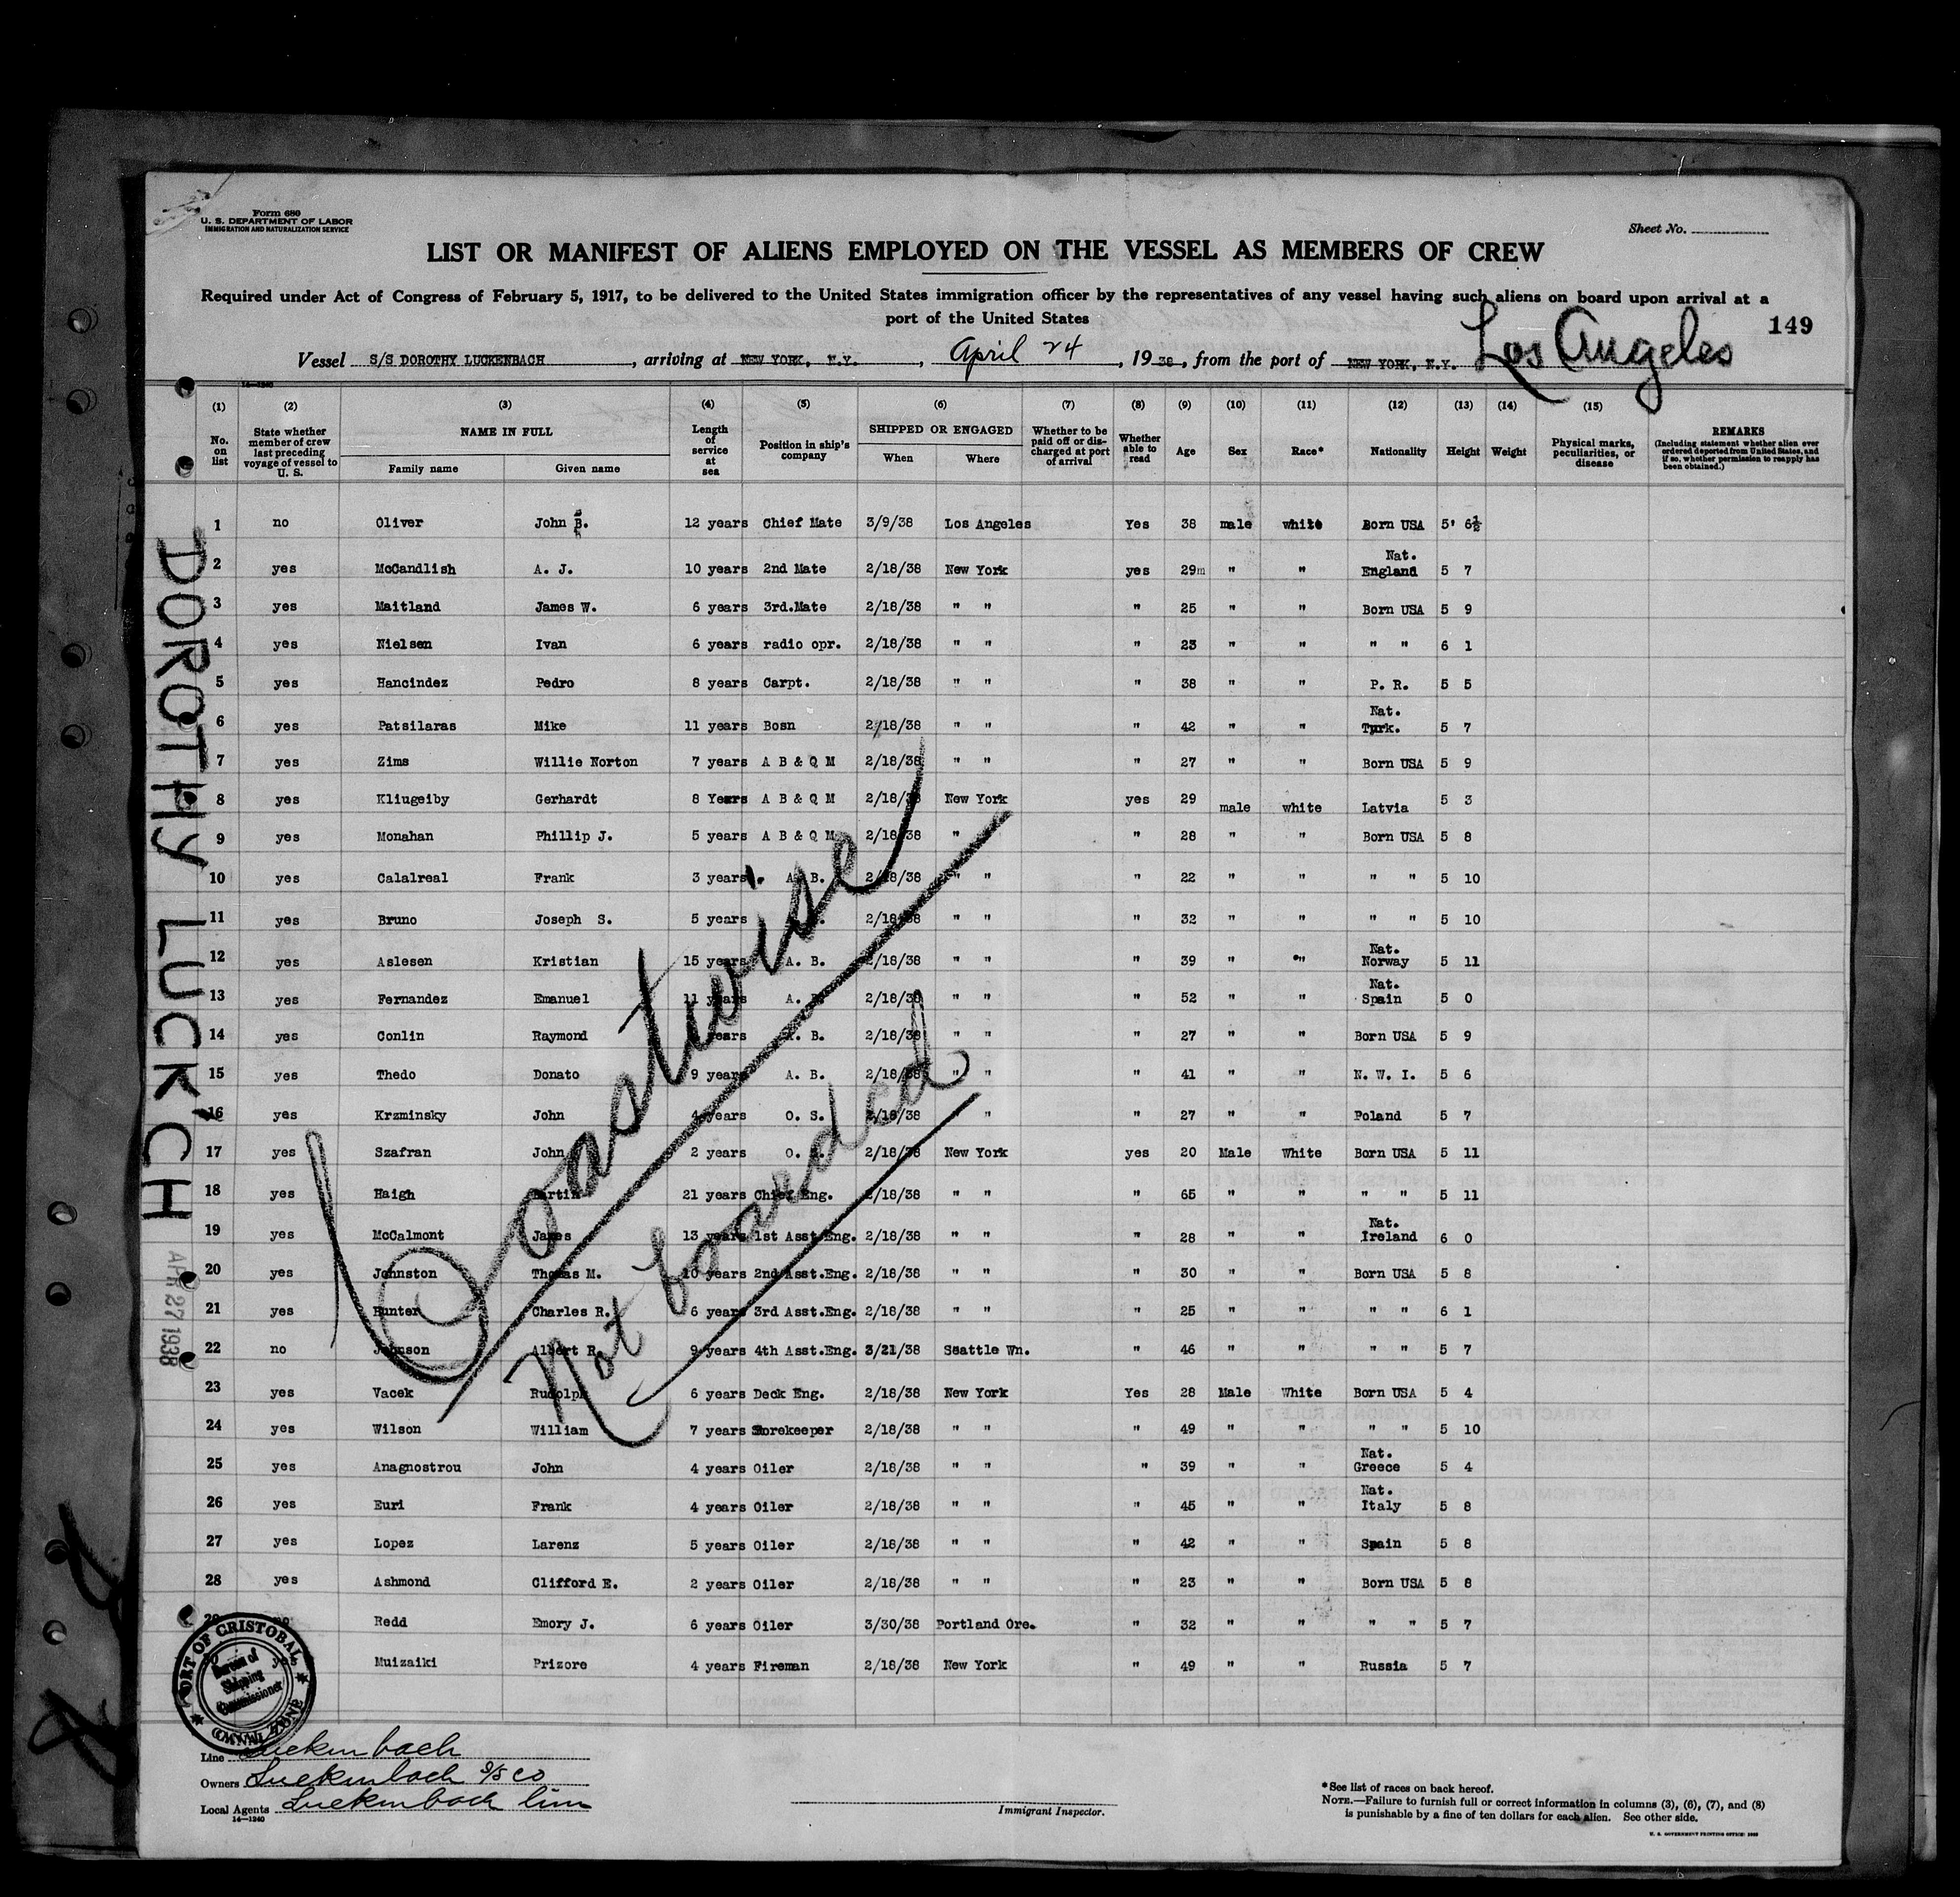 Form 680
U. S. DEPARTMENT OF LABOR
IMMIGRATION AND NATURALIZATION SERVICE
Sheet No.
LIST OR MANIFEST OF ALIENS EMPLOYED ON THE VESSEL AS MEMBERS OF CREW
Required under Act of Congress of February 5, 1917, to be delivered to the United States immigration officer by the representatives of any vessel having such aliens on board upon arrival at a
port of the United States
149
Vessel S/S DOROTHY LUCKENBACH, arriving at NEW YORK, N.Y., April 24, 1938, from the port of NEW YORK, N.Y. Los Angeles
14—1240
(1) (2) (3) (4) (5) (6) (7) (8) (9) (10) (11) (12) (13) (14) (15)
No. on list | State whether member of crew last preceding voyage of vessel to U. S. | NAME IN FULL Family name Given name | Length of service at sea | Position in ship's company | SHIPPED OR ENGAGED When Where | Whether to be paid off or discharged at port of arrival | Whether able to read | Age | Sex | Race* | Nationality | Height | Weight | Physical marks, peculiarities, or disease | REMARKS (Including statement whether alien ever ordered deported from United States, and if so, whether permission to reapply has been obtained.)
1 no Oliver John B. 12 years Chief Mate 3/9/38 Los Angeles Yes 38 male white Born USA 5' 6½
2 yes McCandlish A. J. 10 years 2nd Mate 2/18/38 New York yes 29m " " Nat. England 5 7
3 yes Maitland James W. 6 years 3rd.Mate 2/18/38 " " " 25 " " Born USA 5 9
4 yes Nielsen Ivan 6 years radio opr. 2/18/38 " " " 23 " " " " 6 1
5 yes Hancindez Pedro 8 years Carpt. 2/18/38 " " " 38 " " P. R. 5 5
6 yes Patsilaras Mike 11 years Bosn 2/18/38 " " " 42 " " Nat. Turk. 5 7
7 yes Zims Willie Norton 7 years A B & Q M 2/18/38 " " " 27 " " Born USA 5 9
8 yes Kliugeiby Gerhardt 8 Years A B & Q M 2/18/38 New York yes 29 male white Latvia 5 3
9 yes Monahan Phillip J. 5 years A B & Q M 2/18/38 " " 28 " " Born USA 5 8
10 yes Calalreal Frank 3 years A. B. 2/18/38 " " " 22 " " " " 5 10
11 yes Bruno Joseph S. 5 years 2/18/38 " " " 32 " " " " 5 10
12 yes Aslesen Kristian 15 years A. B. 2/18/38 " " " 39 " " Nat. Norway 5 11
13 yes Fernandez Emanuel 11 years A. 2/18/38 " " " 52 " " Nat. Spain 5 0
14 yes Conlin Raymond years A. B. 2/18/38 " " " 27 " " Born USA 5 9
15 yes Thedo Donato 9 years A. B. 2/18/38 " " " 41 " " N. W. I. 5 6
16 yes Krzminsky John 4 years O. S. 2/18/38 " " " 27 " " Poland 5 7
17 yes Szafran John 2 years O. 2/18/38 New York yes 20 Male White Born USA 5 11
18 yes Haigh Martin 21 years Chief Eng. 2/18/38 " " " 65 " " " " 5 11
19 yes McCalmont James 13 years 1st Asst Eng. 2/18/38 " " " 28 " " Nat. Ireland 6 0
20 yes Johnston Thomas M. 10 years 2nd Asst.Eng. 2/18/38 " " " 30 " " Born USA 5 8
21 yes Hunter Charles R. 6 years 3rd Asst.Eng. 2/18/38 " " " 25 " " " " 6 1
22 no Johnson Albert R. 9 years 4th Asst.Eng. 3/21/38 Seattle Wn. " 46 " " " " 5 7
23 yes Vacek Rudolph 6 years Deck Eng. 2/18/38 New York Yes 28 Male White Born USA 5 4
24 yes Wilson William 7 years Storekeeper 2/18/38 " " " 49 " " " " 5 10
25 yes Anagnostrou John 4 years Oiler 2/18/38 " " " 39 " " Nat. Greece 5 4
26 yes Euri Frank 4 years Oiler 2/18/38 " " " 45 " " Nat. Italy 5 8
27 yes Lopez Larenz 5 years Oiler 2/18/38 " " " 42 " " Spain 5 8
28 yes Ashmond Clifford E. 2 years Oiler 2/18/38 " " " 23 " " Born USA 5 8
29 no Redd Emory J. 6 years Oiler 3/30/38 Portland Ore. " 32 " " " " 5 7
Muizaiki Prizore 4 years Fireman 2/18/38 New York " 49 " " Russia 5 7
Coastwise
Not boarded
DOROTHY LUCK'CH
APR 27 1938
PORT OF CRISTOBAL
Bureau of
Shipping
Commissioner
CANAL ZONE
Line Luckenbach
Owners Luckenbach S/S Co
Local Agents Luckenbach Line
14—1240
Immigrant Inspector.
*See list of races on back hereof.
NOTE.—Failure to furnish full or correct information in columns (3), (6), (7), and (8)
is punishable by a fine of ten dollars for each alien. See other side.
U. S. GOVERNMENT PRINTING OFFICE: